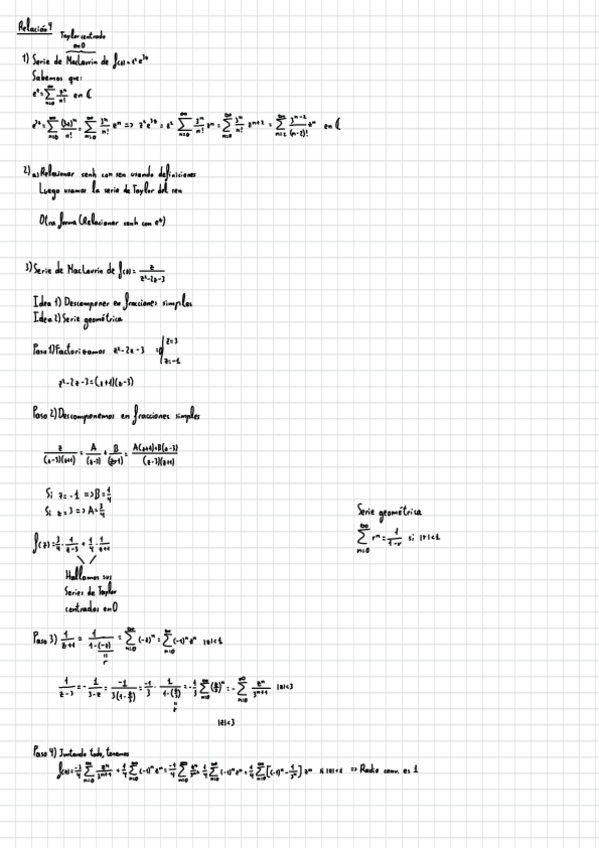 Relación 4
Taylor centrado
en 0
1) Serie de MacLaurin de f(z)=z²e^{3z}
Sabemos que:
e^z = ∑_{n=0}^{∞} z^n/n! en ℂ
e^{3z} = ∑_{n=0}^{∞} (3z)^n/n! = ∑_{n=0}^{∞} 3^n/n! z^n => z²e^{3z} = z² ∑_{n=0}^{∞} 3^n/n! z^n = ∑_{n=0}^{∞} 3^n/n! z^{n+2} = ∑_{n=2}^{∞} 3^{n-2}/(n-2)! z^n en ℂ
2) a) Relacionar senh con sen usando definiciones
Luego usamos la serie de Taylor del sen
Otra forma (Relacionar senh con e^z)
3) Serie de MacLaurin de f(z) = z/(z²-2z-3)
Idea 1) Descomponer en fracciones simples
Idea 2) Serie geométrica
Paso 1) Factorizamos z²-2z-3 =0 | z=3
z=-1
z²-2z-3=(z+1)(z-3)
Paso 2) Descomponemos en fracciones simples
z/((z-3)(z+1)) = A/(z-3) + B/(z+1) = (A(z+1)+B(z-3))/((z-3)(z+1))
Si z=-1 => B=1/4
Si z=3 => A=3/4
Serie geométrica
∑_{n=0}^{∞} r^n = 1/(1-r) si |r|<1
f(z) = 3/4 · 1/(z-3) + 1/4 · 1/(z+1)
Hallamos sus
Series de Taylor
centradas en 0
Paso 3) 1/(z+1) = 1/(1-(-z)) = ∑_{n=0}^{∞} (-z)^n = ∑_{n=0}^{∞} (-1)^n z^n |z|<1
r
1/(z-3) = -1/(3-z) = -1/(3(1-z/3)) = -1/3 · 1/(1-(z/3)) = -1/3 ∑_{n=0}^{∞} (z/3)^n = -∑_{n=0}^{∞} z^n/3^{n+1} |z|<3
r
|z|<3
Paso 4) Juntando todo, tenemos
f(z) = -3/4 ∑_{n=0}^{∞} z^n/3^{n+1} + 1/4 ∑_{n=0}^{∞} (-1)^n z^n = -1/4 ∑_{n=0}^{∞} z^n/3^n + 1/4 ∑_{n=0}^{∞} (-1)^n z^n = 1/4 ∑_{n=0}^{∞} [(-1)^n - 1/3^n] z^n si |z|<1 => Radio conv. es 1